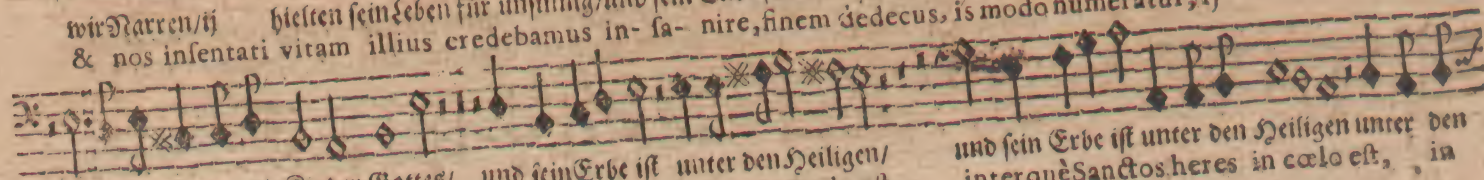 wir Narren/ij hielten sein Leben für unsinnig/und sein
& nos insentati vitam illius credebamus in- sa- nire, finem dedecus, is modo numeratur, ij
Gottes/ und sein Erbe ist unter den Heiligen/ und sein Erbe ist unter den Heiligen unter den
interquè Sanctos heres in cœlo est, in